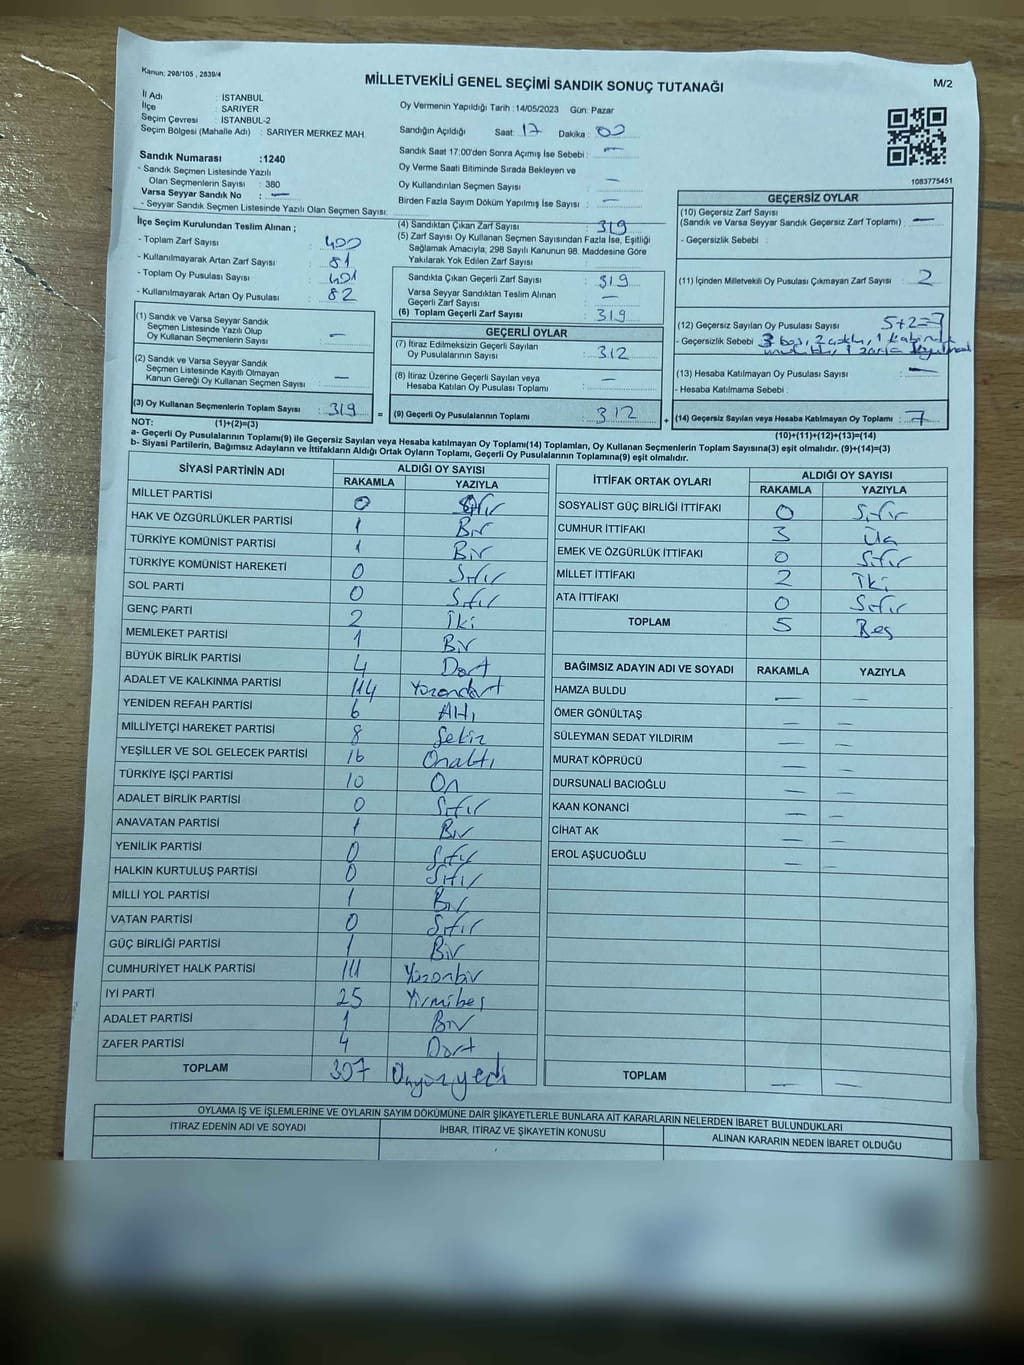 Kanun; 298/105 , 2839/4
MİLLETVEKİLİ GENEL SEÇİMİ SANDIK SONUÇ TUTANAĞI
M/2
İl Adı : İSTANBUL
İlçe : SARIYER
Seçim Çevresi : İSTANBUL-2
Seçim Bölgesi (Mahalle Adı) : SARIYER MERKEZ MAH.
Sandık Numarası :1240
- Sandık Seçmen Listesinde Yazılı
Olan Seçmenlerin Sayısı : 380
Varsa Seyyar Sandık No : —
- Seyyar Sandık Seçmen Listesinde Yazılı Olan Seçmen Sayısı:
Oy Vermenin Yapıldığı Tarih : 14/05/2023 Gün: Pazar
Sandığın Açıldığı Saat: 17 Dakika : 00
Sandık Saat 17:00'den Sonra Açımış İse Sebebi : —
Oy Verme Saati Bitiminde Sırada Bekleyen ve
Oy Kullandırılan Seçmen Sayısı : —
Birden Fazla Sayım Döküm Yapılmış İse Sayısı : —
1083775451
İlçe Seçim Kurulundan Teslim Alınan ;
- Toplam Zarf Sayısı : 400
- Kullanılmayarak Artan Zarf Sayısı : 81
- Toplam Oy Pusulası Sayısı : 401
- Kullanılmayarak Artan Oy Pusulası : 82
(1) Sandık ve Varsa Seyyar Sandık
Seçmen Listesinde Yazılı Olup
Oy Kullanan Seçmenlerin Sayısı : —
(2) Sandık ve Varsa Seyyar Sandık
Seçmen Listesinde Kayıtlı Olmayan
Kanun Gereği Oy Kullanan Seçmen Sayısı : —
(3) Oy Kullanan Seçmenlerin Toplam Sayısı : 319 =
(4) Sandıktan Çıkan Zarf Sayısı : 319
(5) Zarf Sayısı Oy Kullanan Seçmen Sayısından Fazla İse, Eşitliği
Sağlamak Amacıyla; 298 Sayılı Kanunun 98. Maddesine Göre
Yakılarak Yok Edilen Zarf Sayısı :
Sandıkta Çıkan Geçerli Zarf Sayısı : 319
Varsa Seyyar Sandıktan Teslim Alınan
Geçerli Zarf Sayısı : —
(6) Toplam Geçerli Zarf Sayısı : 319
GEÇERLİ OYLAR
(7) İtiraz Edilmeksizin Geçerli Sayılan
Oy Pusulalarının Sayısı : 312
(8) İtiraz Üzerine Geçerli Sayılan veya
Hesaba Katılan Oy Pusulası Toplamı : —
(9) Geçerli Oy Pusulalarının Toplamı : 312 +
GEÇERSİZ OYLAR
(10) Geçersiz Zarf Sayısı
(Sandık ve Varsa Seyyar Sandık Geçersiz Zarf Toplamı) : —
- Geçersizlik Sebebi :
(11) İçinden Milletvekili Oy Pusulası Çıkmayan Zarf Sayısı : 2
(12) Geçersiz Sayılan Oy Pusulası Sayısı : 5+2=7
- Geçersizlik Sebebi : 3 boş, 2
(13) Hesaba Katılmayan Oy Pusulası Sayısı : —
- Hesaba Katılmama Sebebi :
(14) Geçersiz Sayılan veya Hesaba Katılmayan Oy Toplamı : 7
NOT: (1)+(2)=(3)
(10)+(11)+(12)+(13)=(14)
a- Geçerli Oy Pusulalarının Toplamı(9) ile Geçersiz Sayılan veya Hesaba katılmayan Oy Toplamı(14) Toplamları, Oy Kullanan Seçmenlerin Toplam Sayısına(3) eşit olmalıdır. (9)+(14)=(3)
b- Siyasi Partilerin, Bağımsız Adayların ve İttifakların Aldığı Ortak Oyların Toplamı, Geçerli Oy Pusulalarının Toplamına(9) eşit olmalıdır.
SİYASİ PARTİNİN ADI ALDIĞI OY SAYISI
RAKAMLA YAZIYLA
MİLLET PARTİSİ 0 Sıfır
HAK VE ÖZGÜRLÜKLER PARTİSİ 1 Bir
TÜRKİYE KOMÜNİST PARTİSİ 1 Bir
TÜRKİYE KOMÜNİST HAREKETİ 0 Sıfır
SOL PARTİ 0 Sıfır
GENÇ PARTİ 2 İki
MEMLEKET PARTİSİ 1 Bir
BÜYÜK BİRLİK PARTİSİ 4 Dört
ADALET VE KALKINMA PARTİSİ 114 Yüzondört
YENİDEN REFAH PARTİSİ 6 Altı
MİLLİYETÇİ HAREKET PARTİSİ 8 Sekiz
YEŞİLLER VE SOL GELECEK PARTİSİ 16 Onaltı
TÜRKİYE İŞÇİ PARTİSİ 10 On
ADALET BİRLİK PARTİSİ 0 Sıfır
ANAVATAN PARTİSİ 1 Bir
YENİLİK PARTİSİ 0 Sıfır
HALKIN KURTULUŞ PARTİSİ 0 Sıfır
MİLLİ YOL PARTİSİ 1 Bir
VATAN PARTİSİ 0 Sıfır
GÜÇ BİRLİĞİ PARTİSİ 1 Bir
CUMHURİYET HALK PARTİSİ 111 Yüzonbir
İYİ PARTİ 25 Yirmibeş
ADALET PARTİSİ 1 Bir
ZAFER PARTİSİ 4 Dört
TOPLAM 307 Üçyüzyedi
İTTİFAK ORTAK OYLARI ALDIĞI OY SAYISI
RAKAMLA YAZIYLA
SOSYALİST GÜÇ BİRLİĞİ İTTİFAKI 0 Sıfır
CUMHUR İTTİFAKI 3 Üç
EMEK VE ÖZGÜRLÜK İTTİFAKI 0 Sıfır
MİLLET İTTİFAKI 2 İki
ATA İTTİFAKI 0 Sıfır
TOPLAM 5 Beş
BAĞIMSIZ ADAYIN ADI VE SOYADI RAKAMLA YAZIYLA
HAMZA BULDU — —
ÖMER GÖNÜLTAŞ — —
SÜLEYMAN SEDAT YILDIRIM — —
MURAT KÖPRÜCÜ — —
DURSUNALİ BACIOĞLU — —
KAAN KONANCİ — —
CİHAT AK — —
EROL AŞUCUOĞLU — —
TOPLAM — —
OYLAMA İŞ VE İŞLEMLERİNE VE OYLARIN SAYIM DÖKÜMÜNE DAİR ŞİKAYETLERLE BUNLARA AİT KARARLARIN NELERDEN İBARET BULUNDUKLARI
İTİRAZ EDENİN ADI VE SOYADI İHBAR, İTİRAZ VE ŞİKAYETİN KONUSU ALINAN KARARIN NEDEN İBARET OLDUĞU